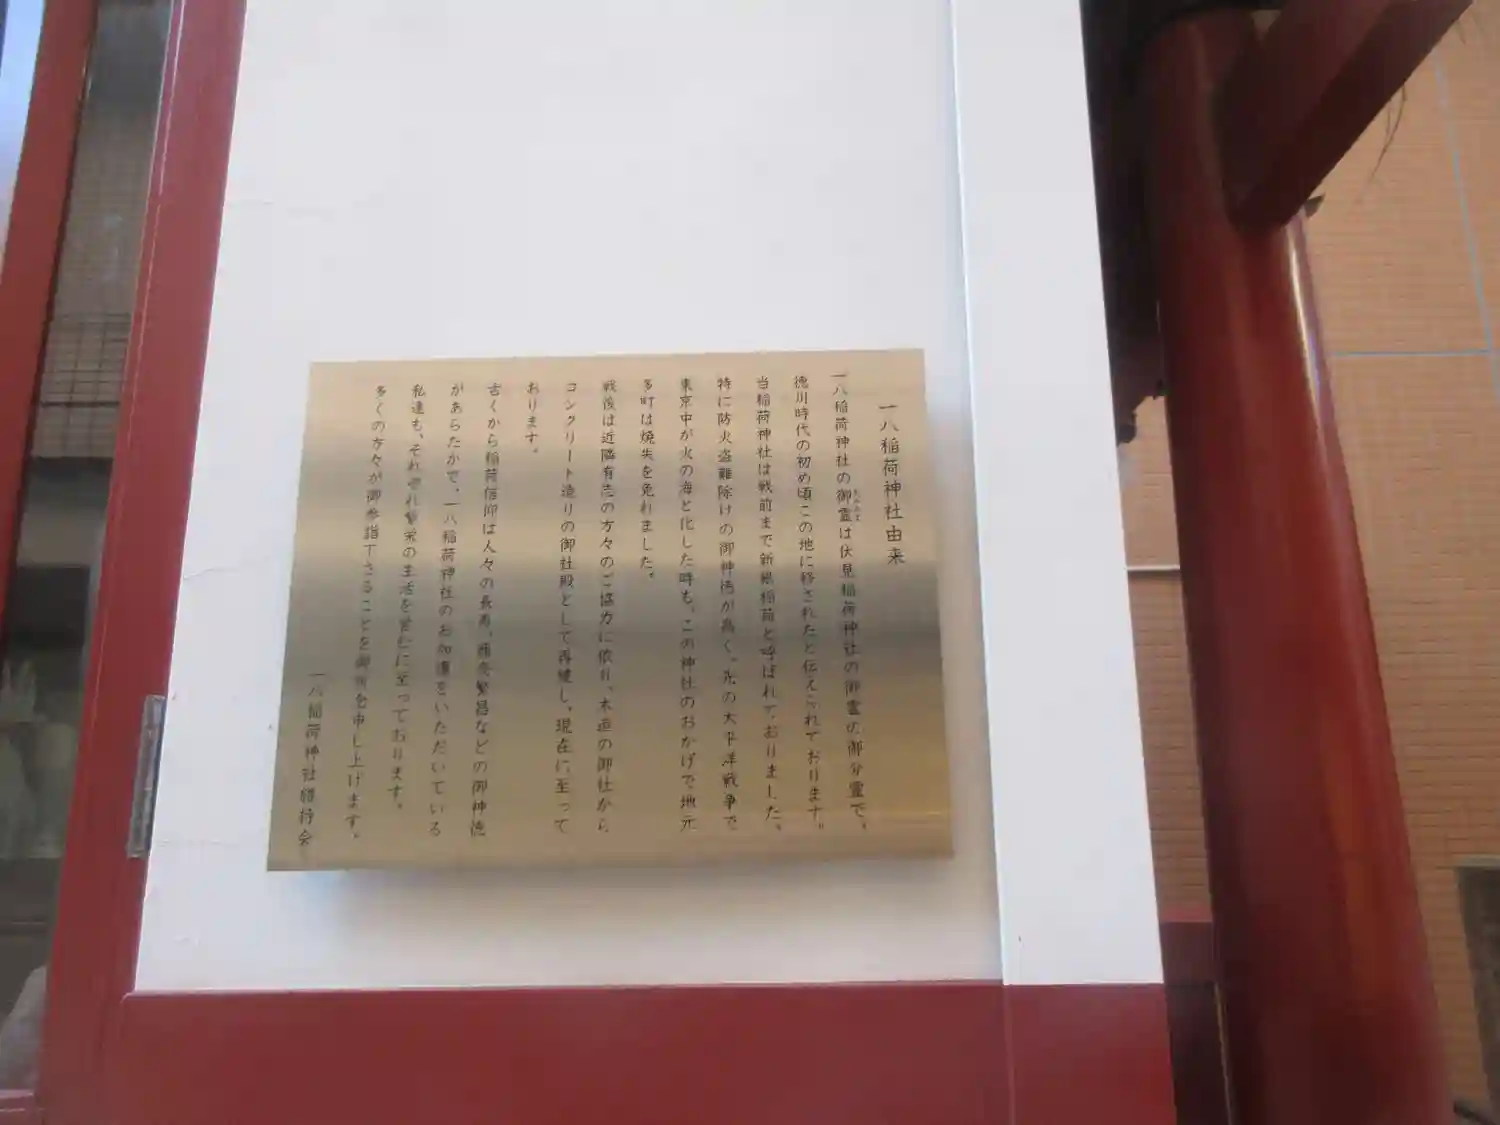 一八稲荷神社由来
一八稲荷神社の御霊は伏見稲荷神社の御霊の御分霊で、
徳川時代の初め頃この地に移されたと伝えられております。
当稲荷神社は戦前まで新銀稲荷と呼ばれておりました。
特に防火盗難除けの御神徳が高く、先の太平洋戦争で
東京中が火の海と化した時も、この神社のおかげで地元
多町は焼失を免れました。
戦後は近隣有志の方々のご協力に依り、木造の御社から
コンクリート造りの御社殿として再建し、現在に至って
おります。
古くから稲荷信仰は人々の長寿、商売繁昌などの御神徳
があらたかで、一八稲荷神社のお加護をいただいている
私達も、それぞれ繁栄の生活を営むに至っております。
多くの方々が御参詣下さることを御案内申し上げます。
一八稲荷神社維持会